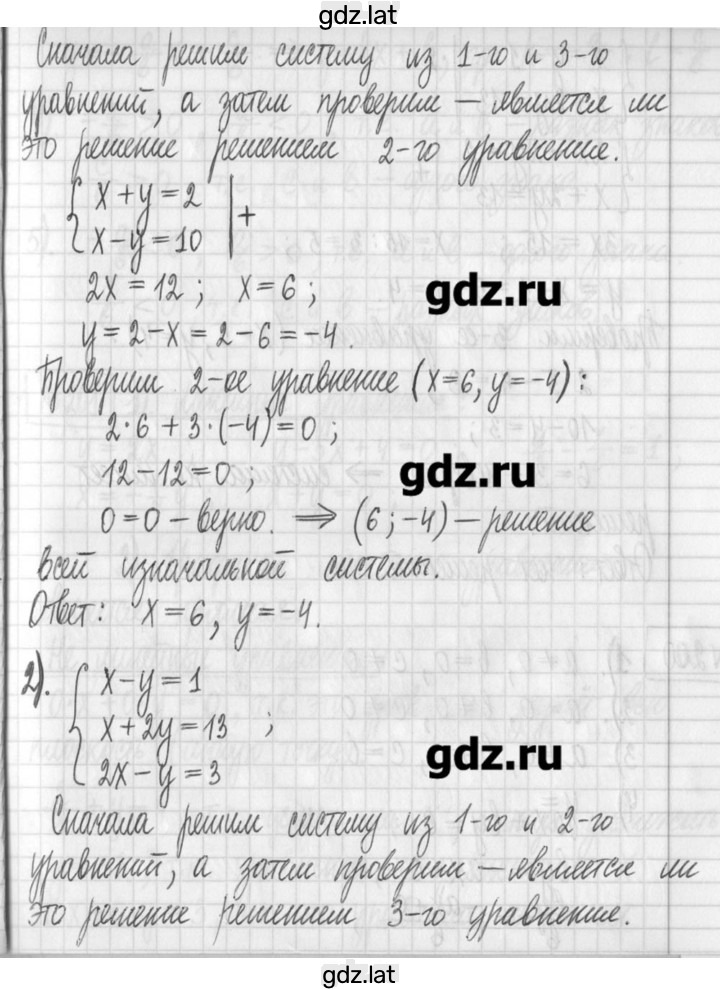 gdz.lat
Сначала решим систему из 1-го и 3-го
уравнений, а затем проверим — является ли
это решение решением 2-го уравнение.
{ x+y=2 | +
x-y=10
2x=12; x=6; gdz.ru
y=2-x=2-6=-4.
Проверим 2-ое уравнение (x=6, y=-4):
2·6+3·(-4)=0;
12-12=0; gdz.ru
0=0-верно. ⇒ (6;-4)-решение
всей изначальной системы.
Ответ: x=6, y=-4.
2). { x-y=1
x+2y=13 ;
2x-y=3 gdz.ru
Сначала решим систему из 1-го и 2-го
уравнений, а затем проверим — является ли
это решение решением 3-го уравнение.
gdz.lat